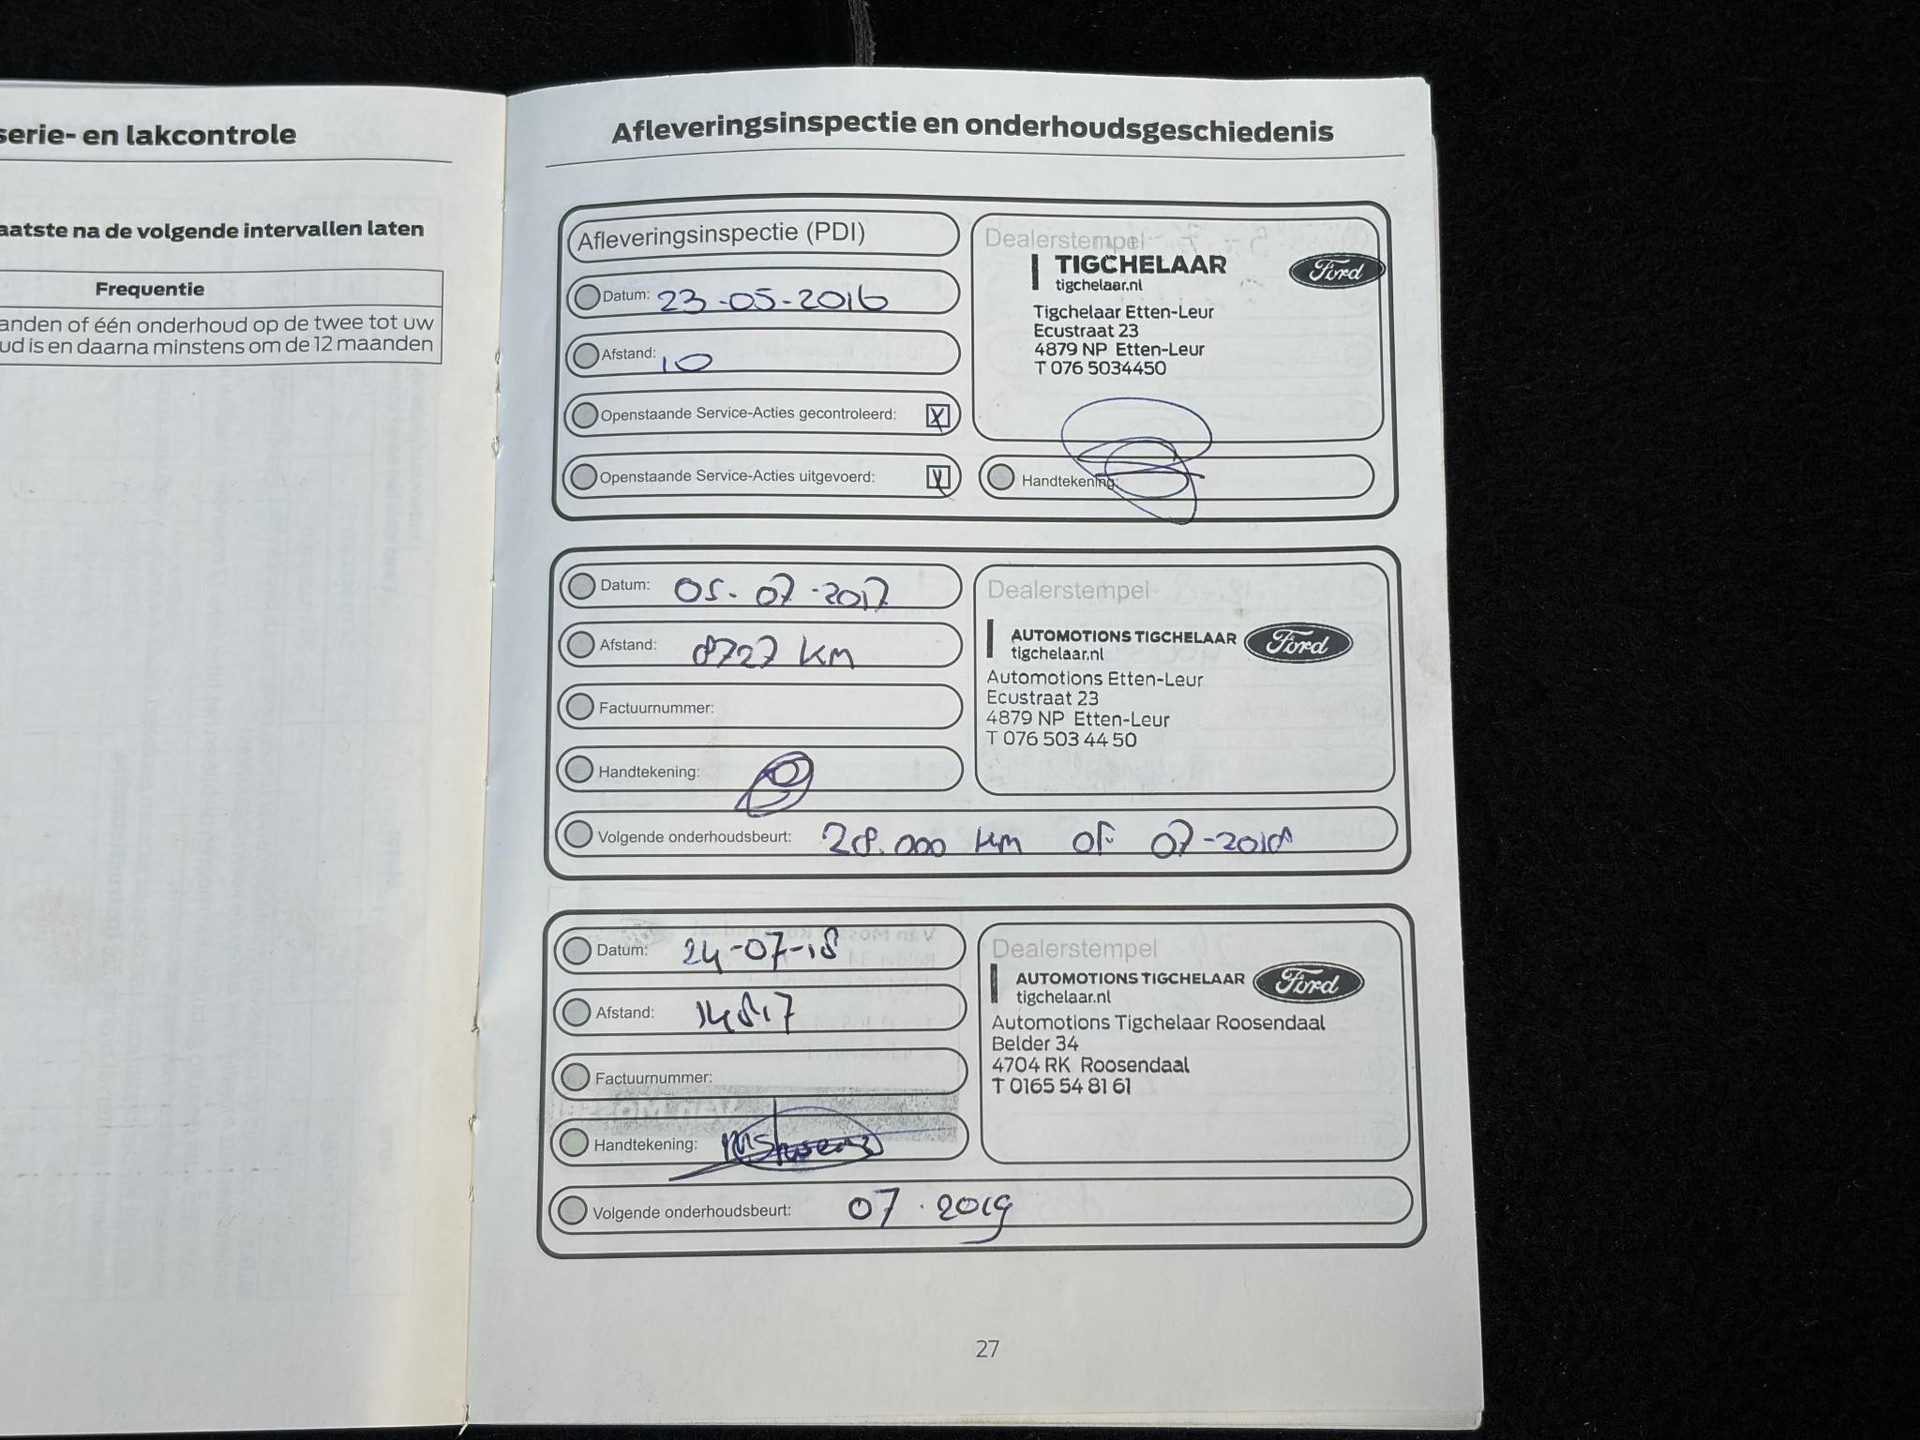 serie- en lakcontrole
aatste na de volgende intervallen laten
Frequentie
anden of één onderhoud op de twee tot uw
ud is en daarna minstens om de 12 maanden
Afleveringsinspectie en onderhoudsgeschiedenis
Afleveringsinspectie (PDI)
Datum: 23-05-2016
Afstand: 10
Openstaande Service-Acties gecontroleerd: X
Openstaande Service-Acties uitgevoerd:
Dealerstempel
TIGCHELAAR Ford
tigchelaar.nl
Tigchelaar Etten-Leur
Ecustraat 23
4879 NP Etten-Leur
T 076 5034450
Handtekening:
Datum: 05-07-2017
Afstand: 8727 km
Factuurnummer:
Handtekening:
Dealerstempel
AUTOMOTIONS TIGCHELAAR Ford
tigchelaar.nl
Automotions Etten-Leur
Ecustraat 23
4879 NP Etten-Leur
T 076 503 44 50
Volgende onderhoudsbeurt: 28.000 km of 07-2018
Datum: 24-07-18
Afstand: 14817
Factuurnummer:
Handtekening:
Dealerstempel
AUTOMOTIONS TIGCHELAAR Ford
tigchelaar.nl
Automotions Tigchelaar Roosendaal
Belder 34
4704 RK Roosendaal
T 0165 54 81 61
Volgende onderhoudsbeurt: 07.2019
27